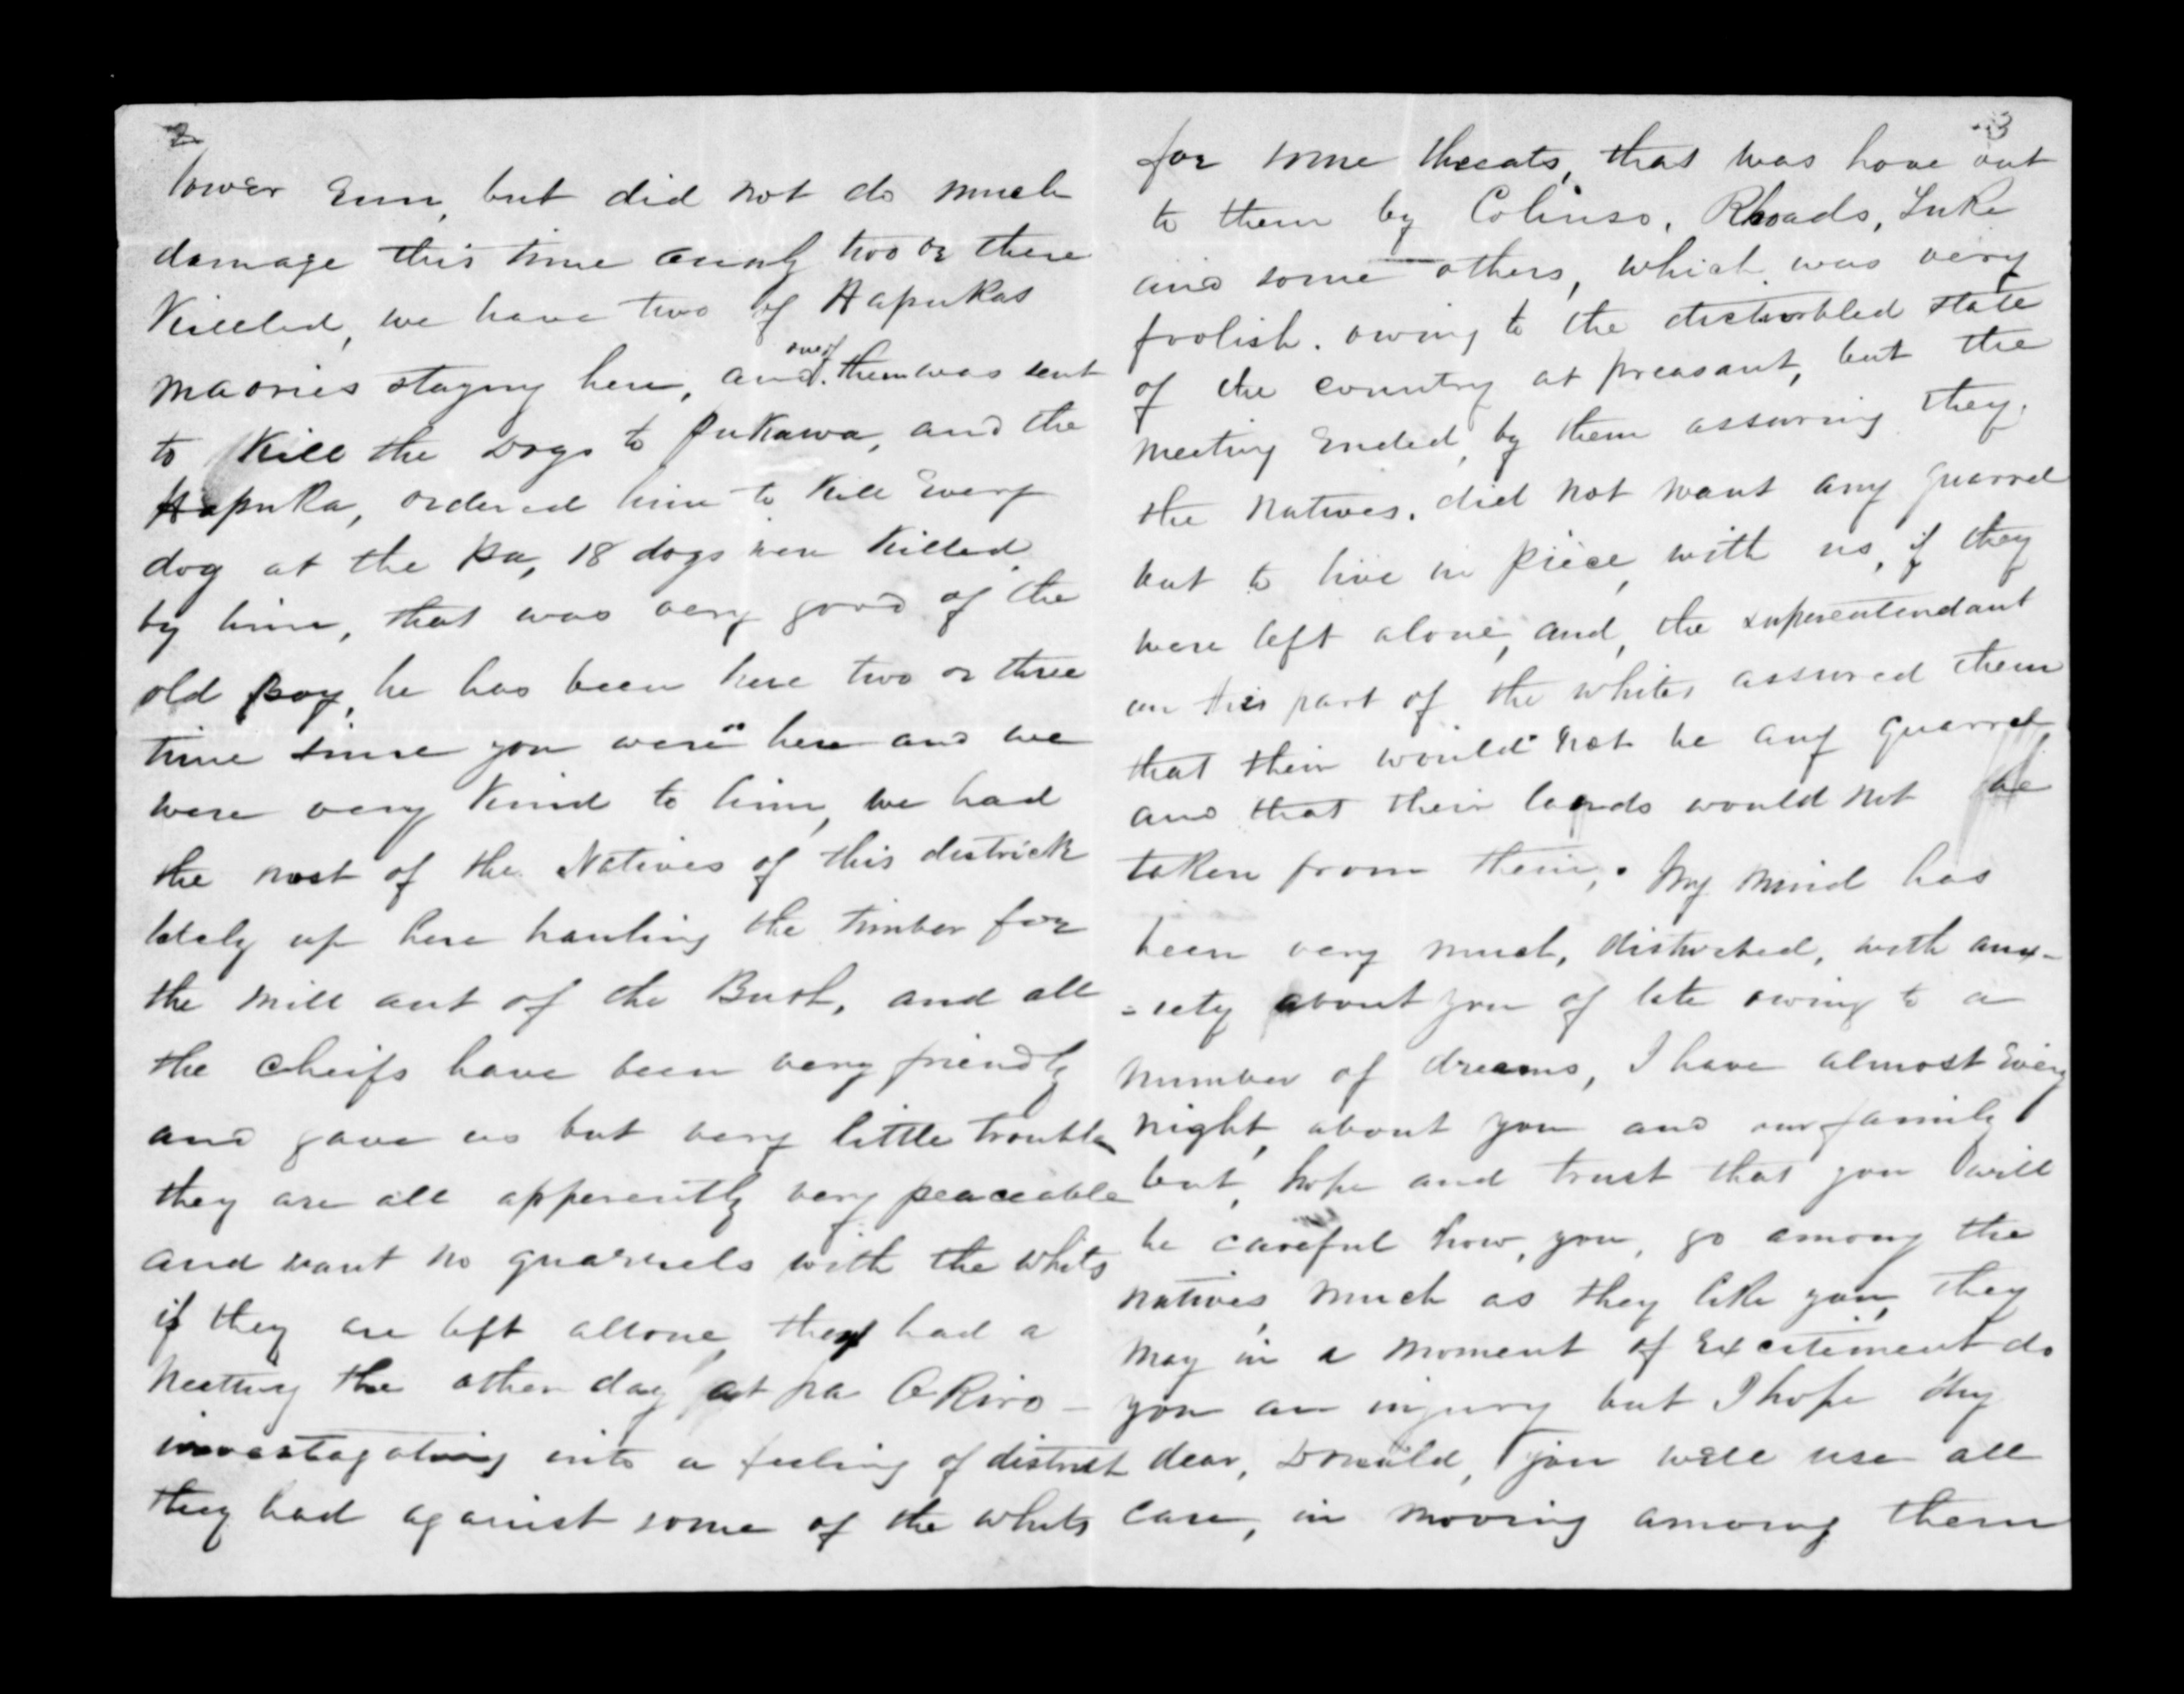 2
lower Run, but did not do much
damage this time only two or three
Killed, we have two of Hapukas
maories staying here, and one of them was sent
to Kill the Dogs to Pukawa, and the
Hapuka, ordered him to Kill Every
dog at the Pa, 18 dogs were Killed
by him, that was very good of the
old Boy, he has been here two or three
time since you were here and we
were very Kind to him, we had
the most of the Natives of this districk
lately up here hauling the timber for
the mill out of the Bush, and all
the cheifs have been very friendly
and gave us but very little trouble
they are all apperently very peaceable
and want no quarrels with the whits
if they are left allone, they had a
meeting the other day at pa
investagating into a feeling of distrust
they had against some of the whits
3
for some threats, that was hove out
to them by Colinso, Rhoads,
and some others, which was very
foolish. owing to the disturbled state
of the country at preasant, but the
meeting Ended, by them assuring they.
the natives. did not want any quarrel
but to live in piece, with us, if they
were left alone, and, the superentendant
on his part of the whites assured them
that their would not be any quarrel
and that their lands would not be
taken from them. My mind has
been very much, disturbed, with anx-
=iety about you of late owing to a
number of dreams, I have almost Every
night, about you and our family
but, hope and trust that you will
be careful how, you, go among the
natives, much as they like you, they
may in a moment of Excitement do
you an injury but I hope My
dear, Donald, you will use all
care, in moving among them